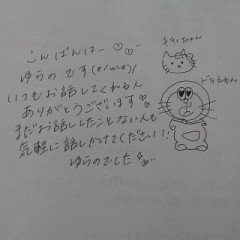 こんばんはー♡♡
ゆらの です(o/ω\o)
いつもお話してくれる人
ありがとうございます♡
まだお話ししたことない人も
気軽に話しかけてください!!
ゆらのでした!
キティちゃん
ドラえもん